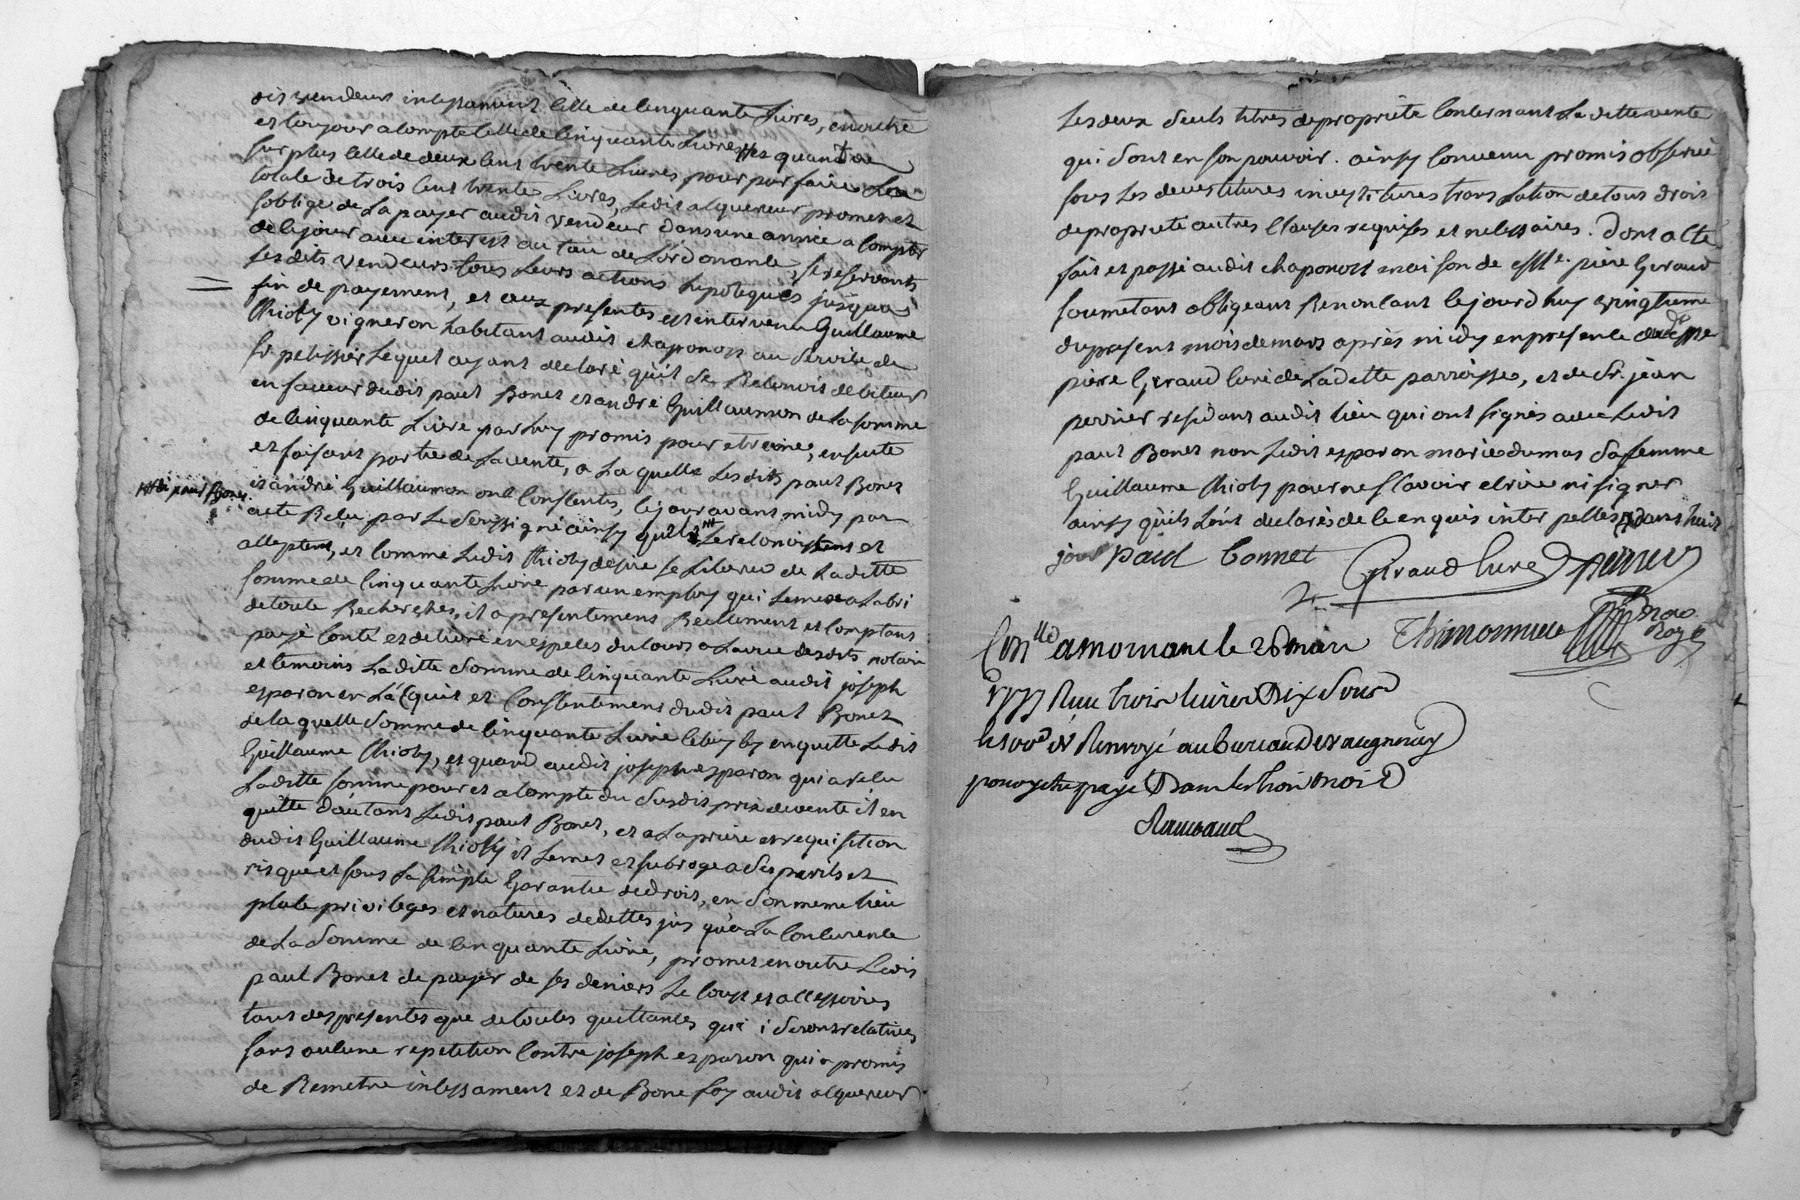 dis vendeurs incessament celle de cinquante Livres, en outre
et ce jour a compte celle de cinquante Livres et quand au
surplus celle de deux cent trente Livres pour parfaire
totale de trois cent trente Livres, Ledit acquereur promet et
soblige de La payer audit vendeur dans une année a compter
de ce jour avec interest au taux de Lordonance, se reservants
lesdits vendeurs tous Leurs actions hipoteques jusques a
fin de payement, et aux presentes est intervenu Guillaume
Thioly vigneron habitant audit chaponost au Service de
Sr pelissier Lequel ayant declaré quil Se Reconnoit debiteur
en faveur dudit paul Bonet et andré Guillaumon de la somme
de cinquante Livre par Luy promis pour etreine, ensuite
et faisant partie de La vente, a La quelle Lesdits paul Bonet
et andré Guillaumon ont Consentis, ce jour avant midy par
Ledit paul Bonet
acte Reçu par Le Soussigné ainsy quils Le reconoissent et
acceptent, et comme Ledit Thioly desire se Liberer de Laditte
somme de cinquante Livre par un employ qui Le mete a Labri
de toute Recherches, il a presentement Reellement et comptant
payé conté et delivré en especes du cours a La vue desdits notaire
et temoins Laditte Somme de cinquante Livre audit joseph
esparon en L'acquit et Consentement dudit paul Bonet
de laquelle Somme de cinquante Livre celuy cy en quitte Ledit
Guillaume Thioly, et quand audit joseph esparon qui a reçu
Laditte somme pour et a compte du Susdit prix de vente il en
quitte d'autant Ledit paul Bonet, et a La priere et requisition
dudit Guillaume Thioly il Le met et subroge a Ses perils et
risque et sous La simple Garantie de droit, en Son meme lieu
place privileges et natures de dettes jus qu'a La Concurence
de La Somme de cinquante Livre, promet en outre Ledit
paul Bonet de payer de ses deniers Le coust et accessoires
tant des presentes que de toutes quittances qui i Seront relatives
sans aucune repetition contre joseph esparon qui a promis
de Remetre incessament et de Bone foy audit acquereur
Les deux Seuls titres de propriete Concernant La ditte vente
qui Sont en Son pouvoir. ainsy Convenu promis observé
sous Les devestitures investitures trans lation de tous droit
de propriete autres Clauses requises et necessaires. Dont acte
fait et passé audit chaponost maison de Mre piere Geraud
soumetant obligeant Renoncant ce jour d'huy vingtieme
du present mois de mars après midy en presence dudit Mre
piere Geraud curé de Laditte parroisse, et de Sr. jean
perrier residant audit Lieu qui ont signés avec Ledit
paul Bonet non Ledit esparon marie dumas Sa femme
Guillaume Thioly pour ne Scavoir ecrire ni signer
ainsy qu'ils L'ont declarés de ce enquis inter pellés
jours paul bonnet Giraud Curé perrier
Conllé a mornant le 26 mars Thimonnier Nore Royal
1777 Reçu trois livres Dix Sous
Renvoyé au bureau De vaugneray
pour y etre payé Dans les trois mois